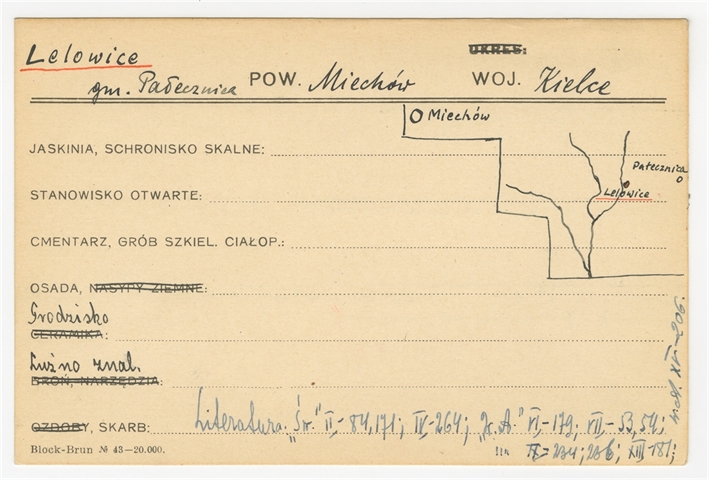 Lelowice
OKRES:
gm. Pałecznica POW. Miechów WOJ. Kielce
Miechów
JASKINIA, SCHRONISKO SKALNE:
Pałecznica
STANOWISKO OTWARTE:
Lelowice
CMENTARZ, GRÓB SZKIEL. CIAŁOP.:
OSADA, NASYPY ZIEMNE:
Grodzisko
CERAMIKA:
Luźno znal.
BROŃ, NARZĘDZIA:
OZDOBY, SKARB: Literatura: „Św." II,- 84,171; IV,-264; „Z.A." VI,-179, VII,-53,54;
IX-234; 236; XIII-181;
XVI-206.
Block-Brun № 43-20.000.